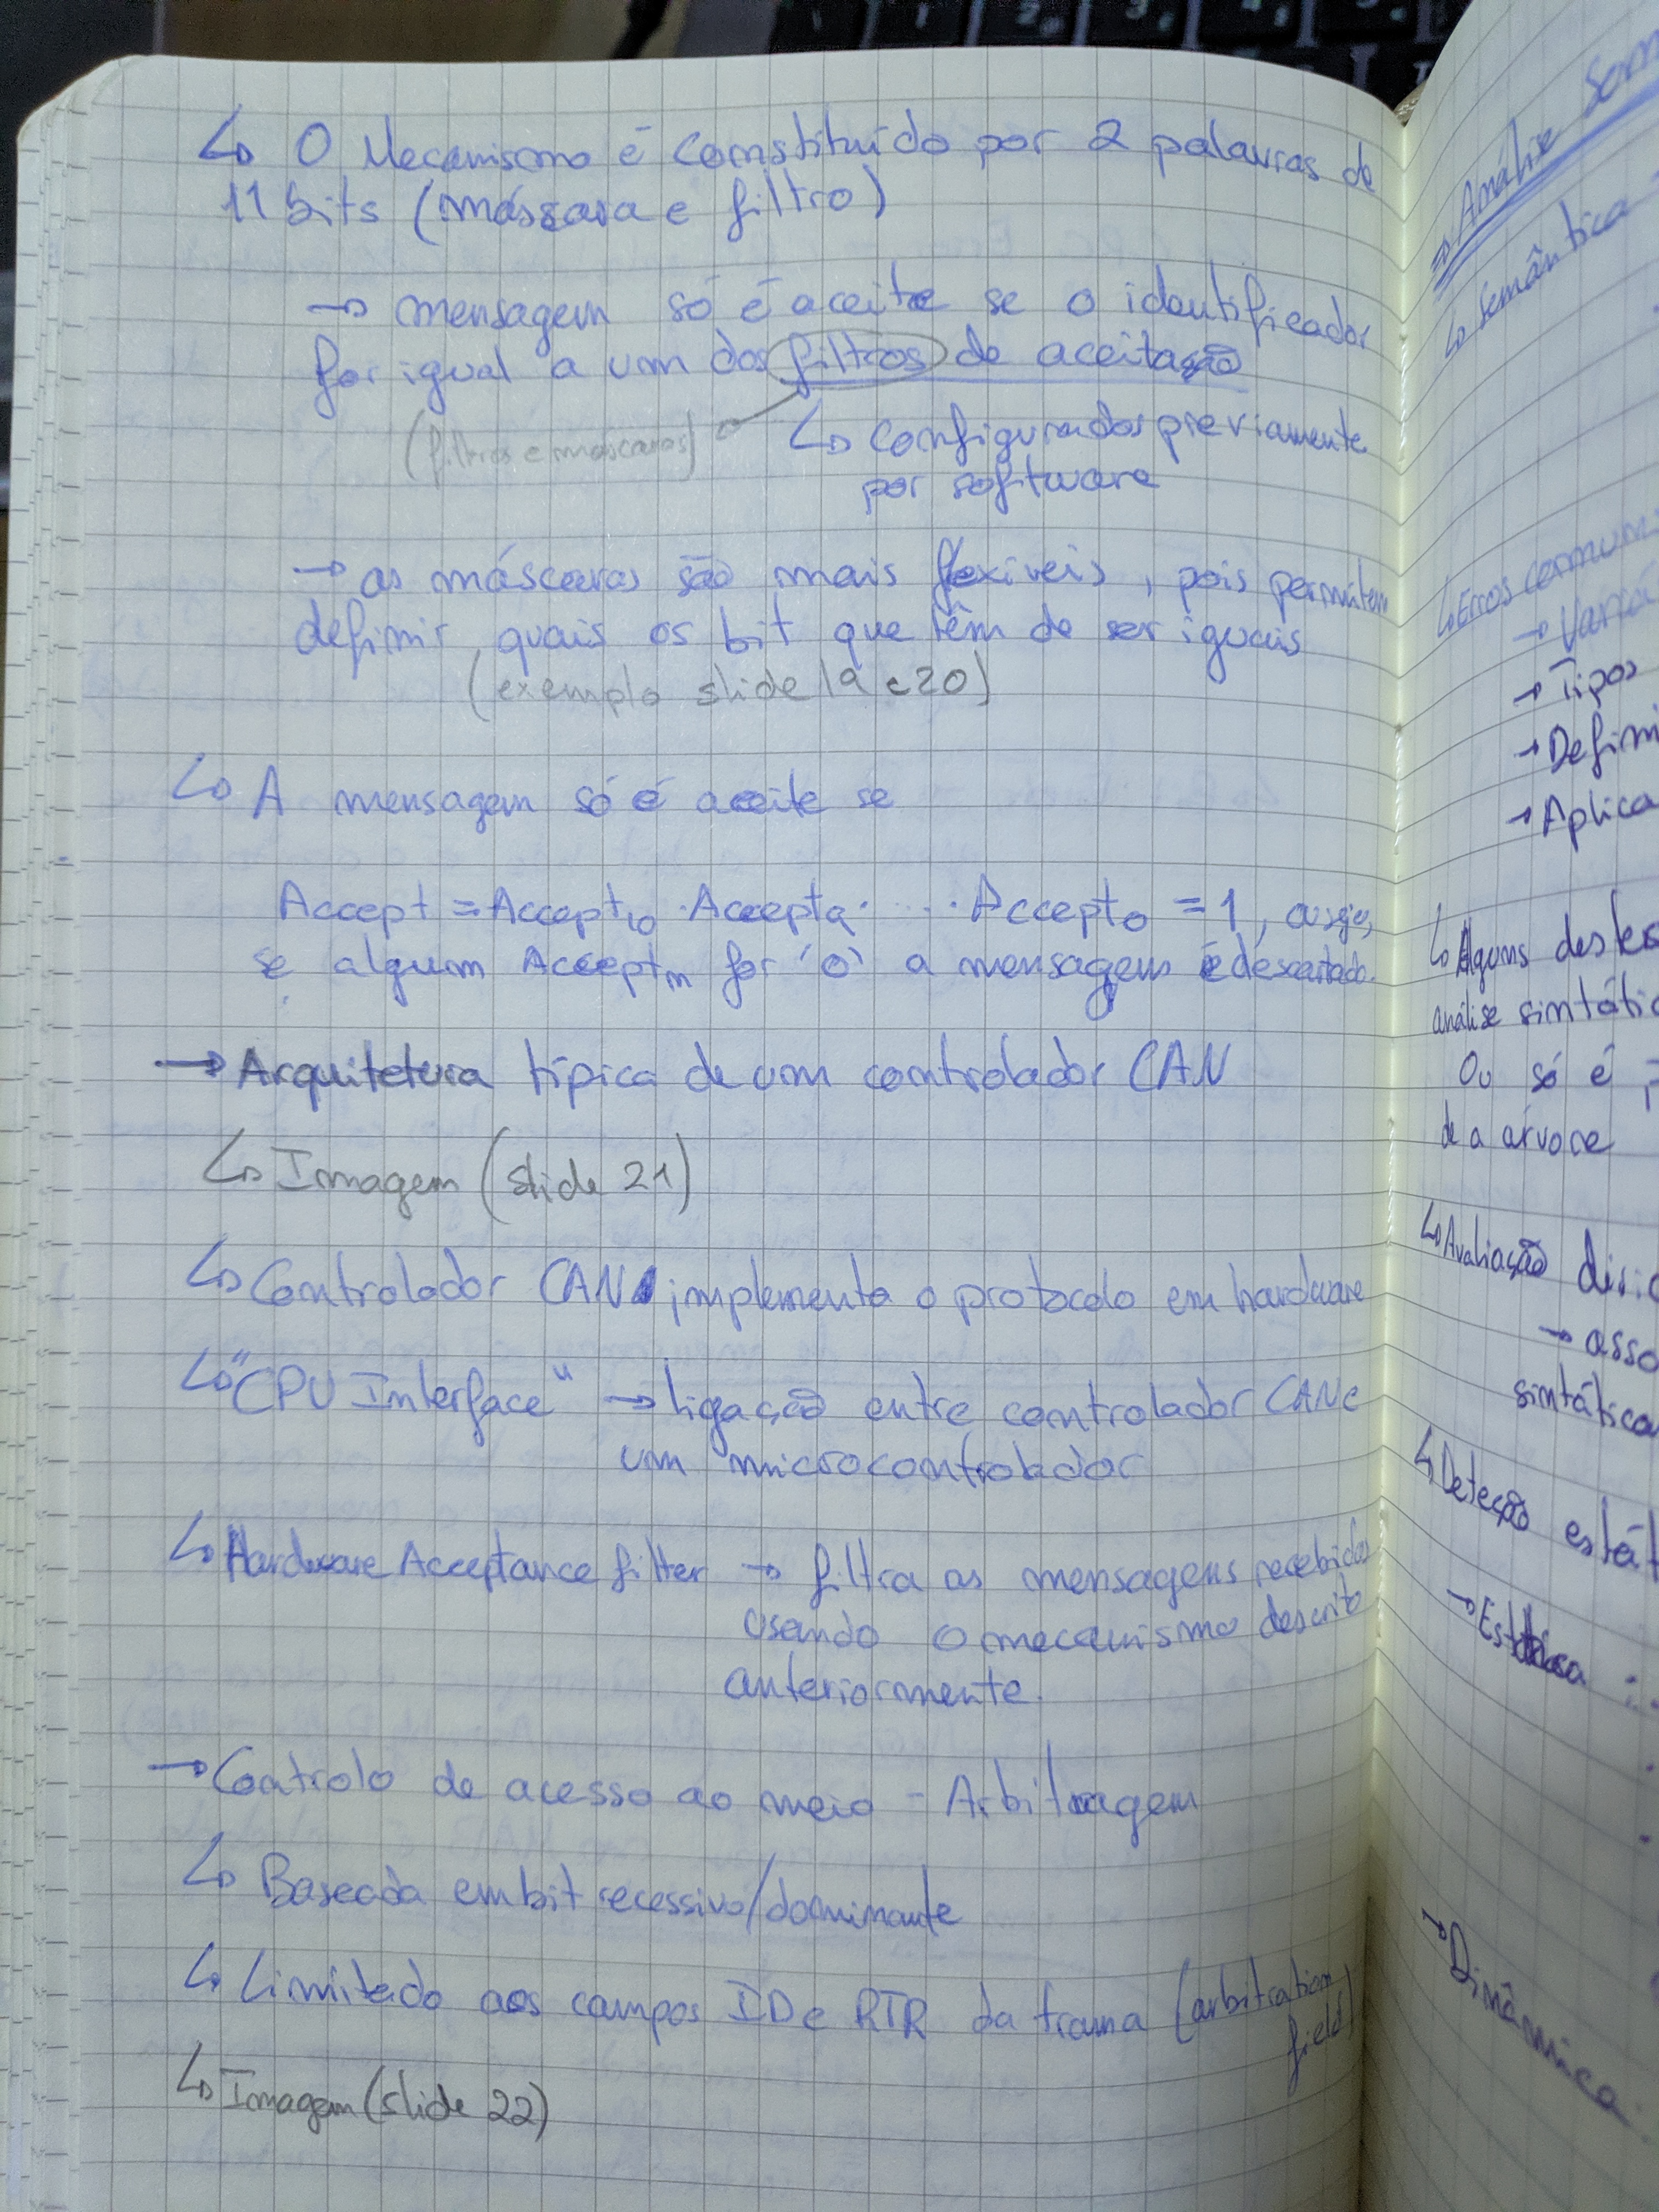 ↳ O Mecanismo é constituído por 2 palavras de
11 bits (máscara e filtro)
→ mensagem só é aceite se o identificador
for igual a um dos filtros de aceitação
(filtros e máscaras)
↳ configurados previamente
por software
→ as máscaras são mais flexíveis, pois permitem
definir quais os bit que têm de ser iguais
(exemplo slide 19 e 20)
↳ A mensagem só é aceite se
Accept = Accept10 · Accept9 · ... · Accept0 = 1, ou seja,
se algum Acceptn for '0' a mensagem é descartada.
→ Arquitetura típica de um controlador CAN
↳ Imagem (slide 21)
↳ Controlador CAN implementa o protocolo em hardware
↳ "CPU Interface" → ligação entre controlador CAN e
um microcontrolador
↳ Hardware Acceptance filter → filtra as mensagens recebidas
usando o mecanismo descrito
anteriormente.
→ Controlo de acesso ao meio - Arbitragem
↳ Baseada em bit recessivo/dominante
↳ Limitado aos campos ID e RTR da trama (arbitration
field)
↳ Imagem (slide 22)
⇒ Análise Sem
↳ semântica
↳ Erros comuns
→ Variá
→ Tipos
→ Defini
→ Aplica
↳ Alguns destes
análise sintátic
Ou só é
de a árvore
↳ Avaliação diri
→ asso
sintática
↳ Deteção estát
→ Estática :
→ Dinâmica